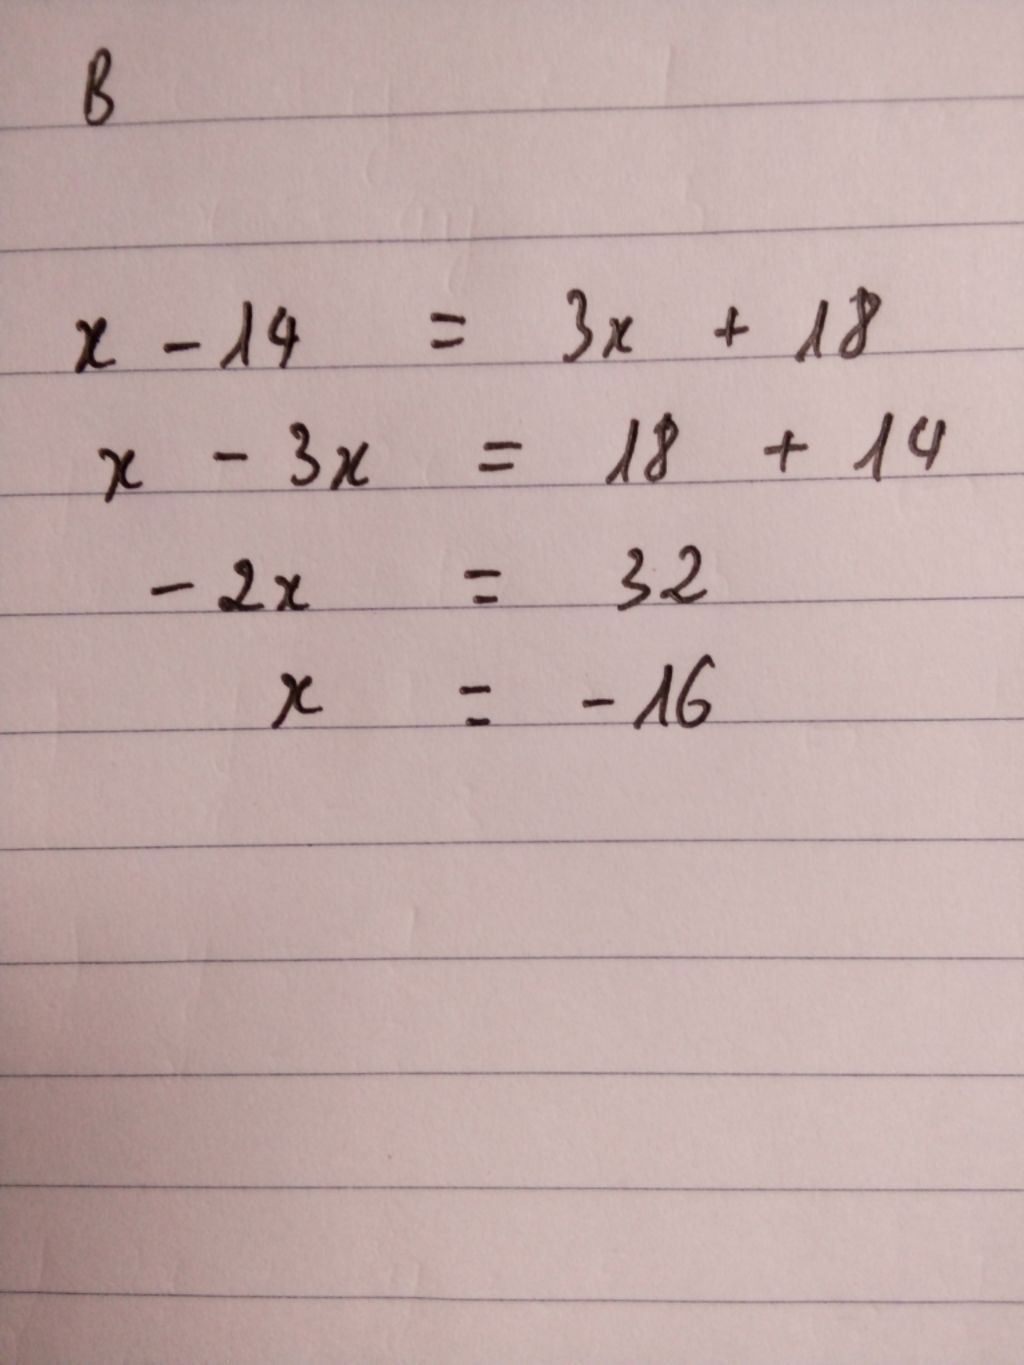 B
x - 14 = 3x + 18
x - 3x = 18 + 14
- 2x = 32
x = - 16